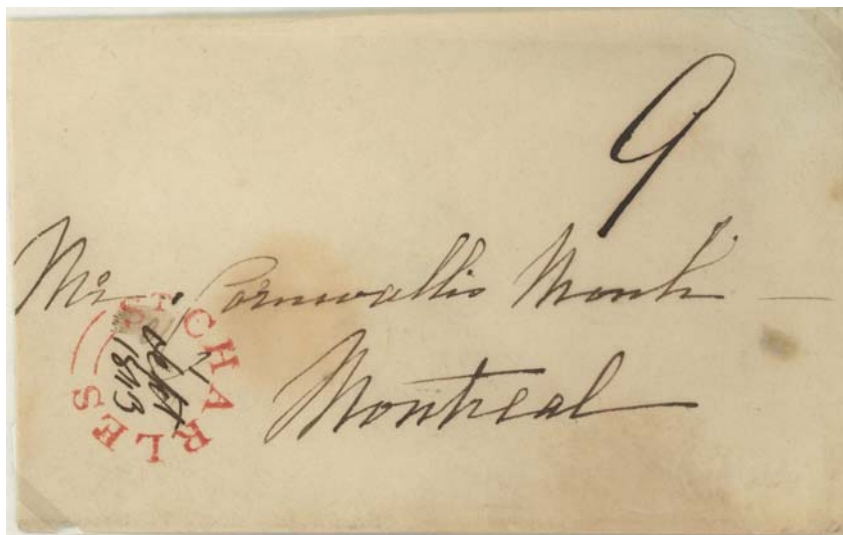 9
Mr. Cornwallis Monk
Montreal
ST CHARLES
Sept
1843